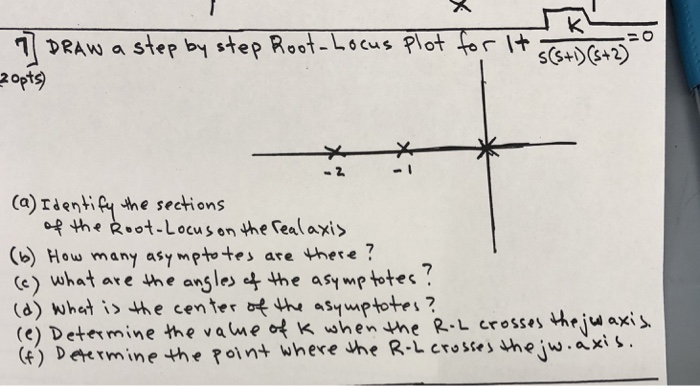 7] DRAW a step by step Root-Locus Plot for 1+ K/(s(s+1)(s+2)) =0
20pts)
-2 -1
(a) Identify the sections
of the Root-Locus on the real axis
(b) How many asymptotes are there?
(c) what are the angles of the asymptotes?
(d) what is the center of the asymptotes?
(e) Determine the value of K when the R-L crosses the jw axis.
(f) Determine the point where the R-L crosses the jw.axis.